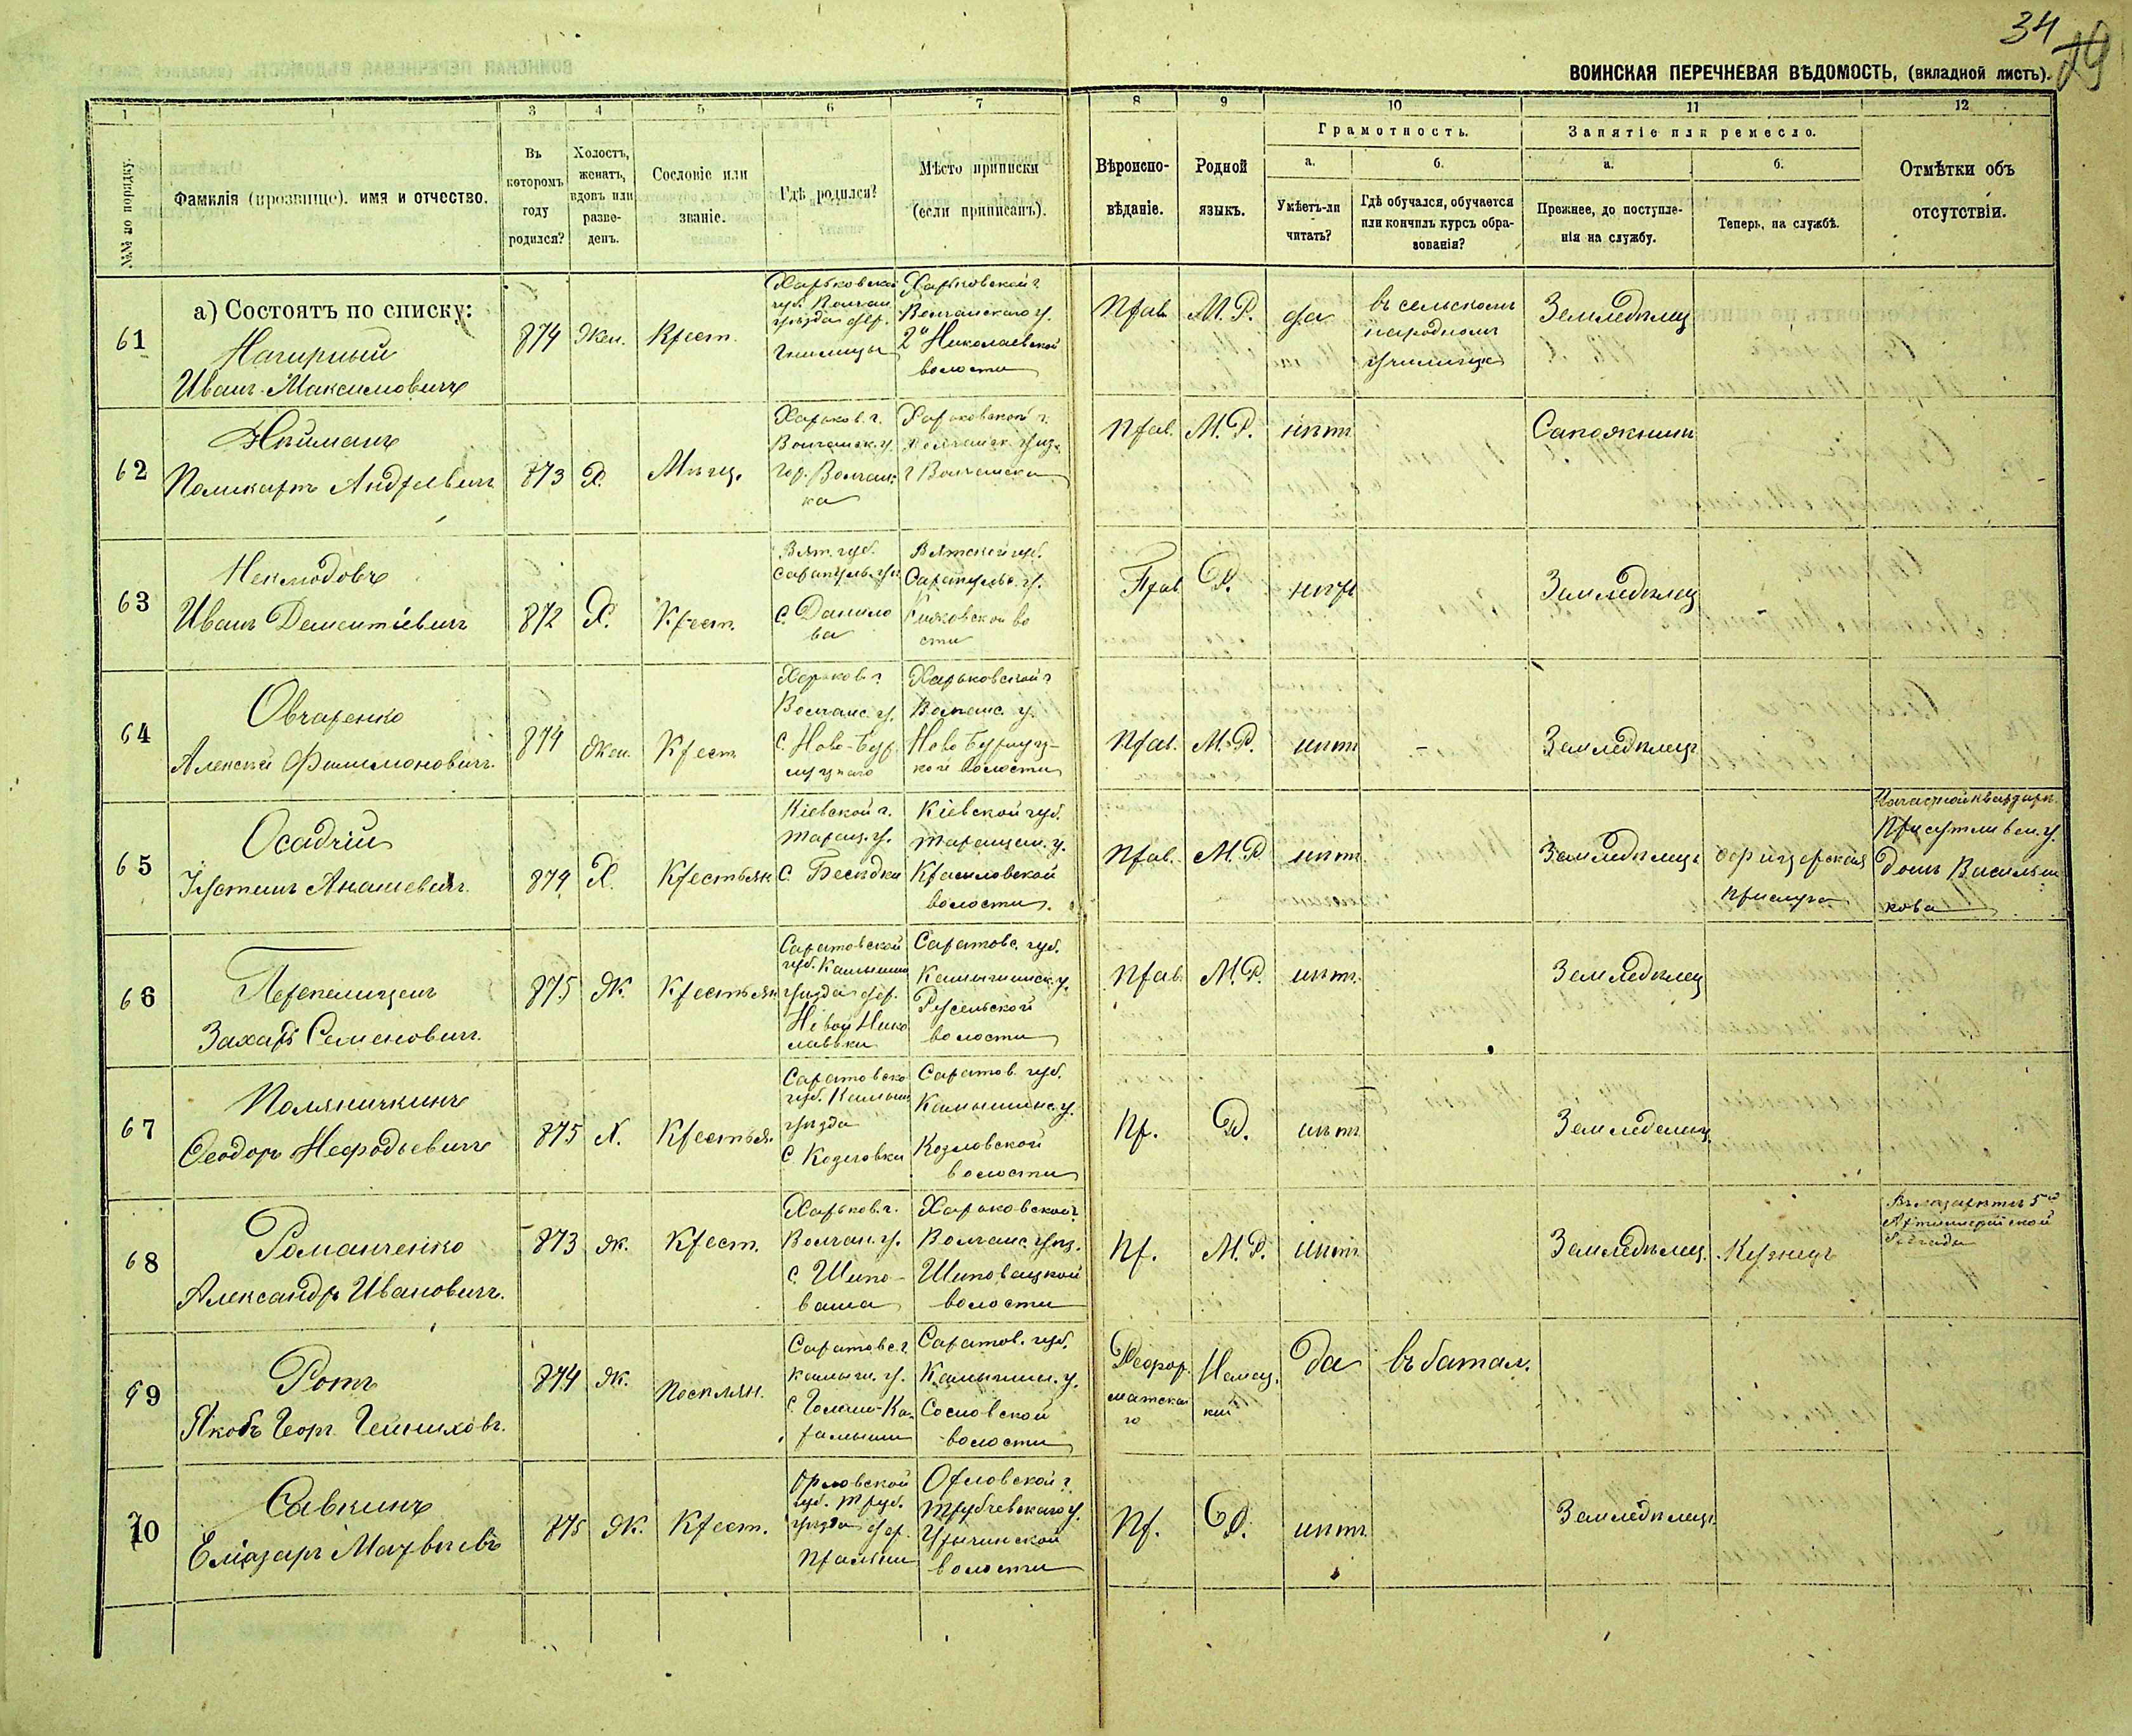 34
29
ВОИНСКАЯ ПЕРЕЧНЕВАЯ ВѢДОМОСТЬ, (вкладной листъ).
1 3 4 5 6 7 8 9 10 11 12
№№ по порядку.
Фамилія (прозвище), имя и отчество.
Въ которомъ году родился?
Холостъ, женатъ, вдовъ или разве-денъ.
Сословіе или званіе.
Гдѣ родился?
Мѣсто приписки (если приписанъ).
Вѣроиспо-вѣданіе.
Родной языкъ.
Грамотность.
а.
Умѣетъ-ли читать?
б.
Гдѣ обучался, обучается или кончилъ курсъ обра-зованія?
Занятіе или ремесло.
а.
Прежнее, до поступле-нія на службу.
б.
Теперь, на службѣ.
Отмѣтки объ отсутствіи.
а) Состоятъ по списку:
61
Нагирный
Иванъ Максимовичъ
874
Жен.
Крест.
Харьковской
губ. Волчан
уѣзда дер.
Гнилицы
Харьковской г
Волчанскаго у.
2й Николаевской
волости
Прав.
М. Р.
да
въ сельскомъ
народномъ
училищѣ
Земледѣлец
62
Поликарпъ Андреевичъ
873
Х.
Мѣщ.
Харьков. г.
Волчанск. у.
гор. Волчанс
ка
Харьковской г.
Волчанск. уѣз.
г Волчанска
Прав.
М. Р.
нѣтъ
Сапожникъ
63
Неклюдовъ
Иванъ Дементіевичъ
872
Х.
Крест.
Вят. губ.
Сарапульс. у.
С. Данило
ва
Вятской губ.
Сарапульс. у.
волости
Прав
Р.
нѣтъ
Земледѣлец
64
Овчаренко
Алексѣй Филимоновичъ.
874
Жен.
Крест
Харьков. г
Волчанс. у.
С. Ново-Бур
луцкаго
Харьковской г
Волчанс. у.
Ново Бурлуц-
кой волости
Прав.
М. Р.
нѣтъ
-
Земледѣлецъ
65
Осадчій
Іустинъ Ананіевичъ.
874
Х.
Крестьян
Кіевской г.
Таращ. у.
С. Бесѣдки
Кіевской губ.
Таращан. у.
волости.
Прав.
М. Р
нѣтъ
Земледѣлецъ
Офицерская
прислуга
На частной квартирѣ
домъ Васильчи
кова
66
Перепелицынъ
Захаръ Семеновичъ.
875
Ж.
Крестьян
Саратовской
губ. Камышин
уѣзда дер.
Новой Нико
лаевки
Саратовс. губ.
Камышинск. у.
волости
Прав.
М. Р.
нѣтъ.
Земледѣлец
67
Поляничкинъ
Ѳеодоръ Мефодьевичъ
875
Х.
Крестьян.
Саратовско
губ. Камыш
уѣзда
С. Козловки
Саратов. губ.
Камышинс. у.
Козловской
волости
Пр.
Р.
нѣтъ
Земледелец
68
Романченко
Александръ Ивановичъ.
873
Ж.
Крест.
Харьков. г.
Волчан. у.
С. Шипо-
вата
Харьковской г.
Волчанс. уѣз.
Шиповацкой
волости
Пр.
М. Р.
нѣтъ
Земледѣлец.
Кузнецъ
Въ лазаретѣ 5й
Артиллерійской
бригады
69
Ротъ
Якобъ Георг. Гейнриховъ.
874
Ж.
Поселян.
Саратовс. г.
Камыш. у.
С. Голый-Ка-
рамышъ
Саратов. губ.
Камышин. у.
Сосновской
волости
Реформ
атскаго
Немец.
кій
да
въ батал.
70
Савкинъ
Еліазаръ Матвѣевъ
875
Ж.
Крест.
Орловской
губ. Труб.
уѣзда дер.
Орловской г
Трубчевскаго у.
волости
Пр.
Р.
нѣтъ
Земледѣлецъ